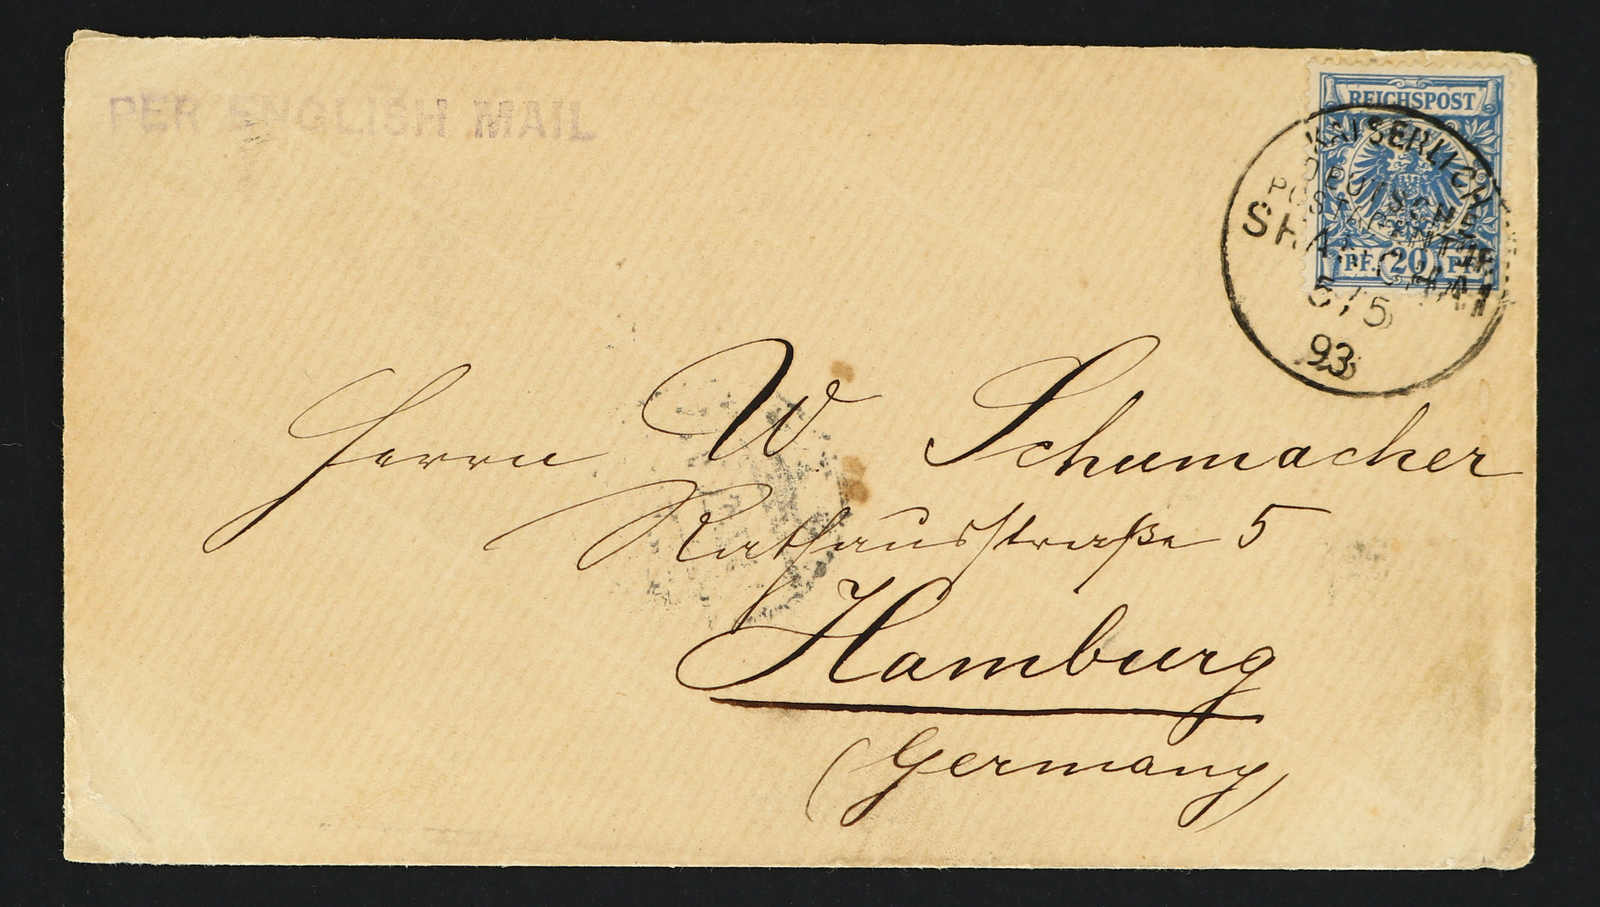 PER ENGLISH MAIL
REICHSPOST
PF. 20 PF.
KAISERLICH
DEUTSCHE
POSTAGENTUR
SHANGHAI
5/5
93
Herrn W Schumacher
Rathausstraße 5
Hamburg
(Germany)